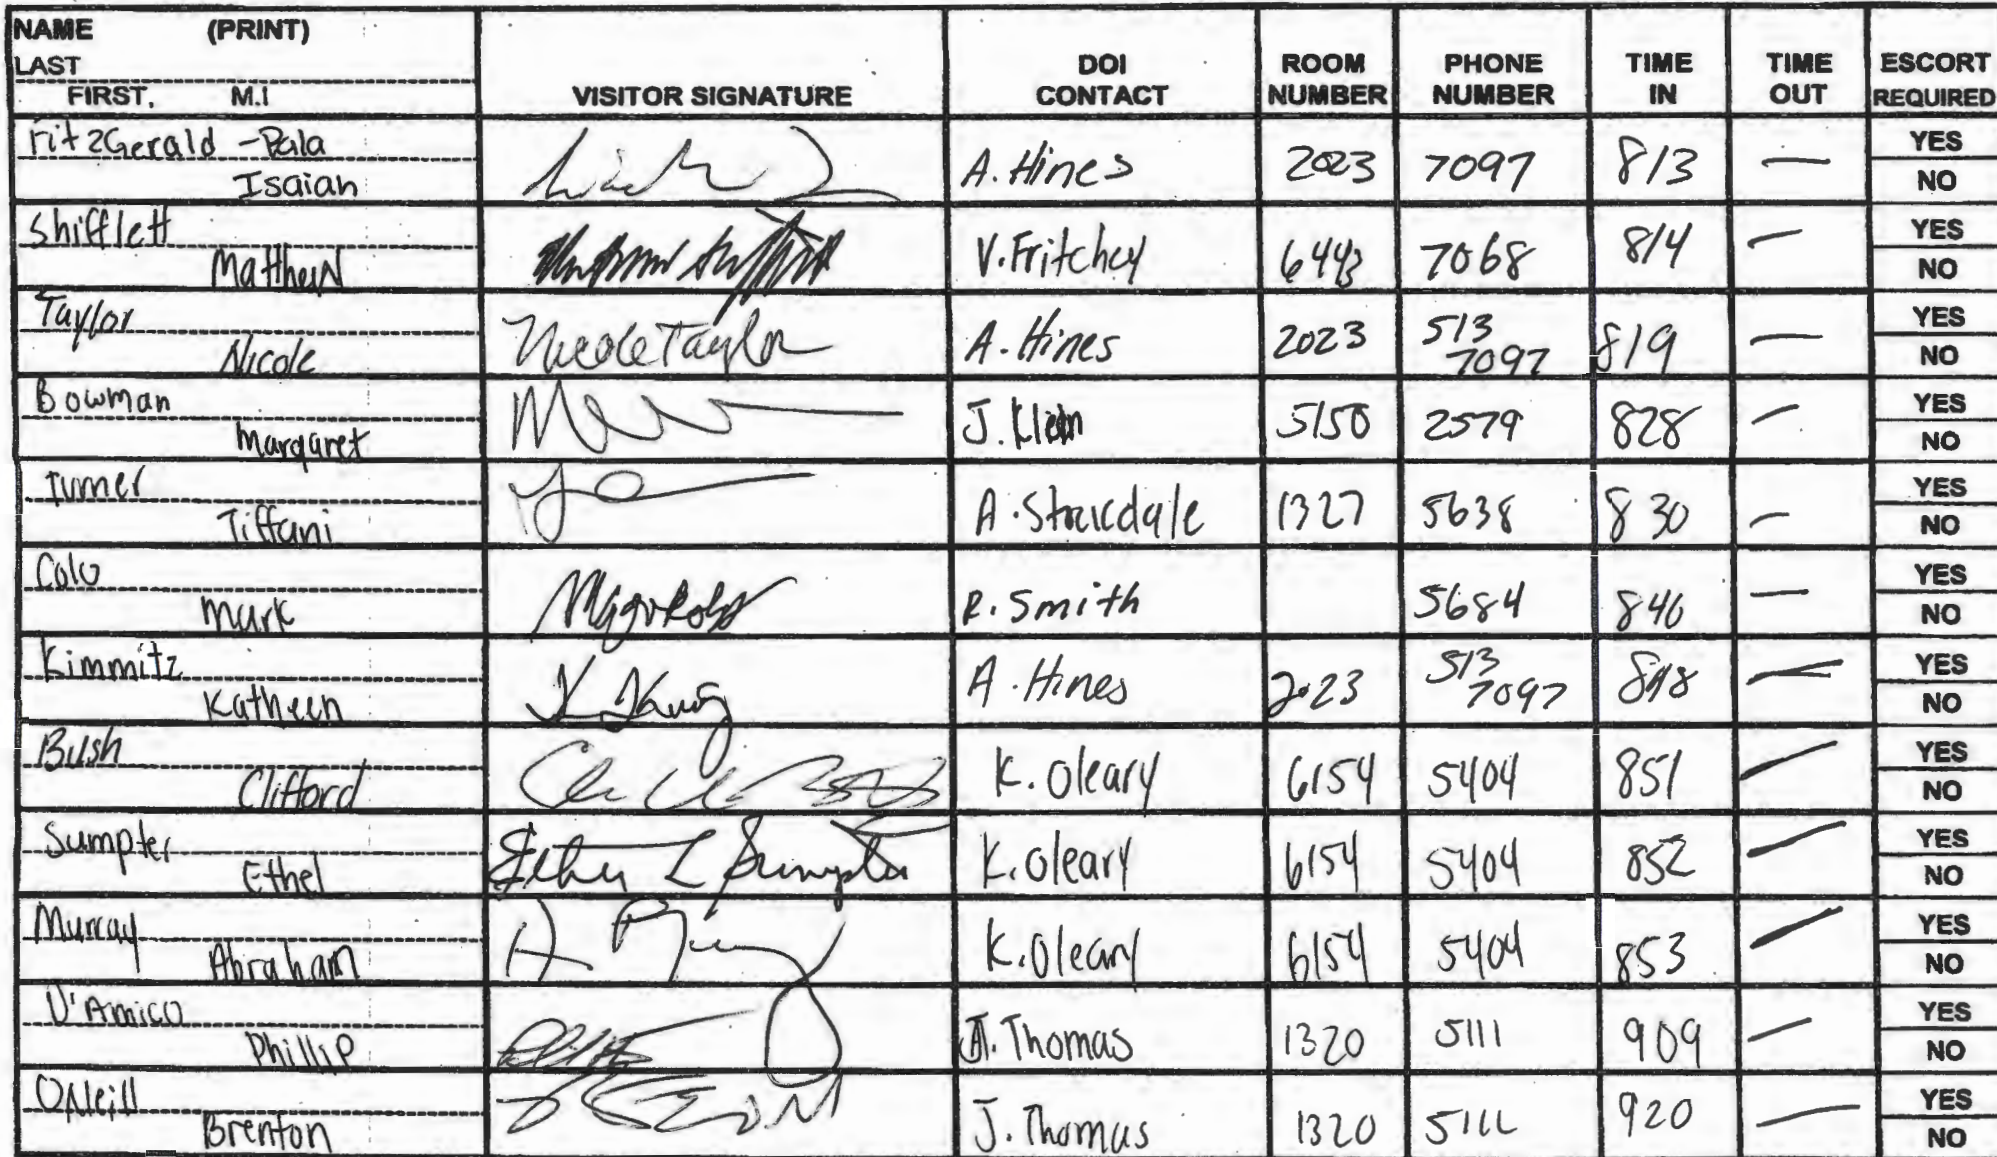 NAME (PRINT)
LAST
FIRST, M.I
VISITOR SIGNATURE
DOI CONTACT
ROOM NUMBER
PHONE NUMBER
TIME IN
TIME OUT
ESCORT REQUIRED
FitzGerald - Pala
Isaiah A. Hines 2023 7097 813 — YES NO
Shifflett
Matthew V. Fritchey 6443 7068 814 — YES NO
Taylor
Nicole Nicole Taylor A. Hines 2023 513 7097 819 — YES NO
Bowman
Margaret J. Klein 5150 2579 828 — YES NO
Turner
Tiffani A. 1327 5638 830 — YES NO
Calo
Mark R. Smith 5684 846 — YES NO
Kimmitz
Katheen A. Hines 2023 513 7097 848 — YES NO
Bush
Clifford K. Oleary 6154 5404 851 — YES NO
Sumpter
Ethel K. Oleary 6154 5404 852 — YES NO
Murray
Abraham K. Oleary 6154 5404 853 — YES NO
D'Amico
Phillip J. Thomas 1320 5111 909 — YES NO
ONeill
Brenton J. Thomas 1320 5111 920 — YES NO